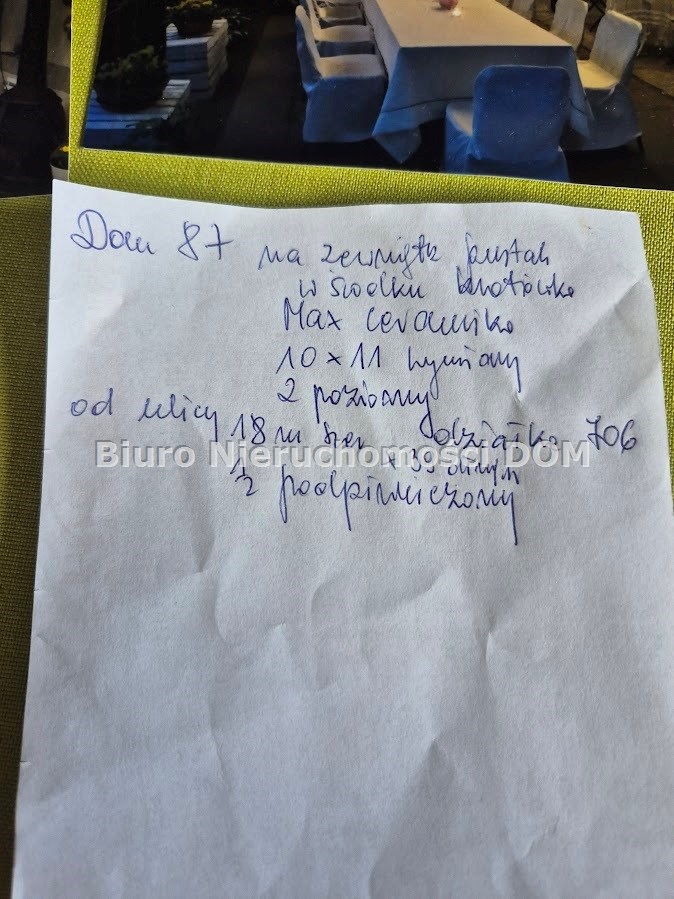 Dom 87 na zewnątrz pustak
w środku kratówka
Max ceramika
10 x 11 wymiary
2 poziomy
od ulicy 18 m szer działka 706
Biuro Nieruchomości DOM
x 39
1/2 podpiwniczony